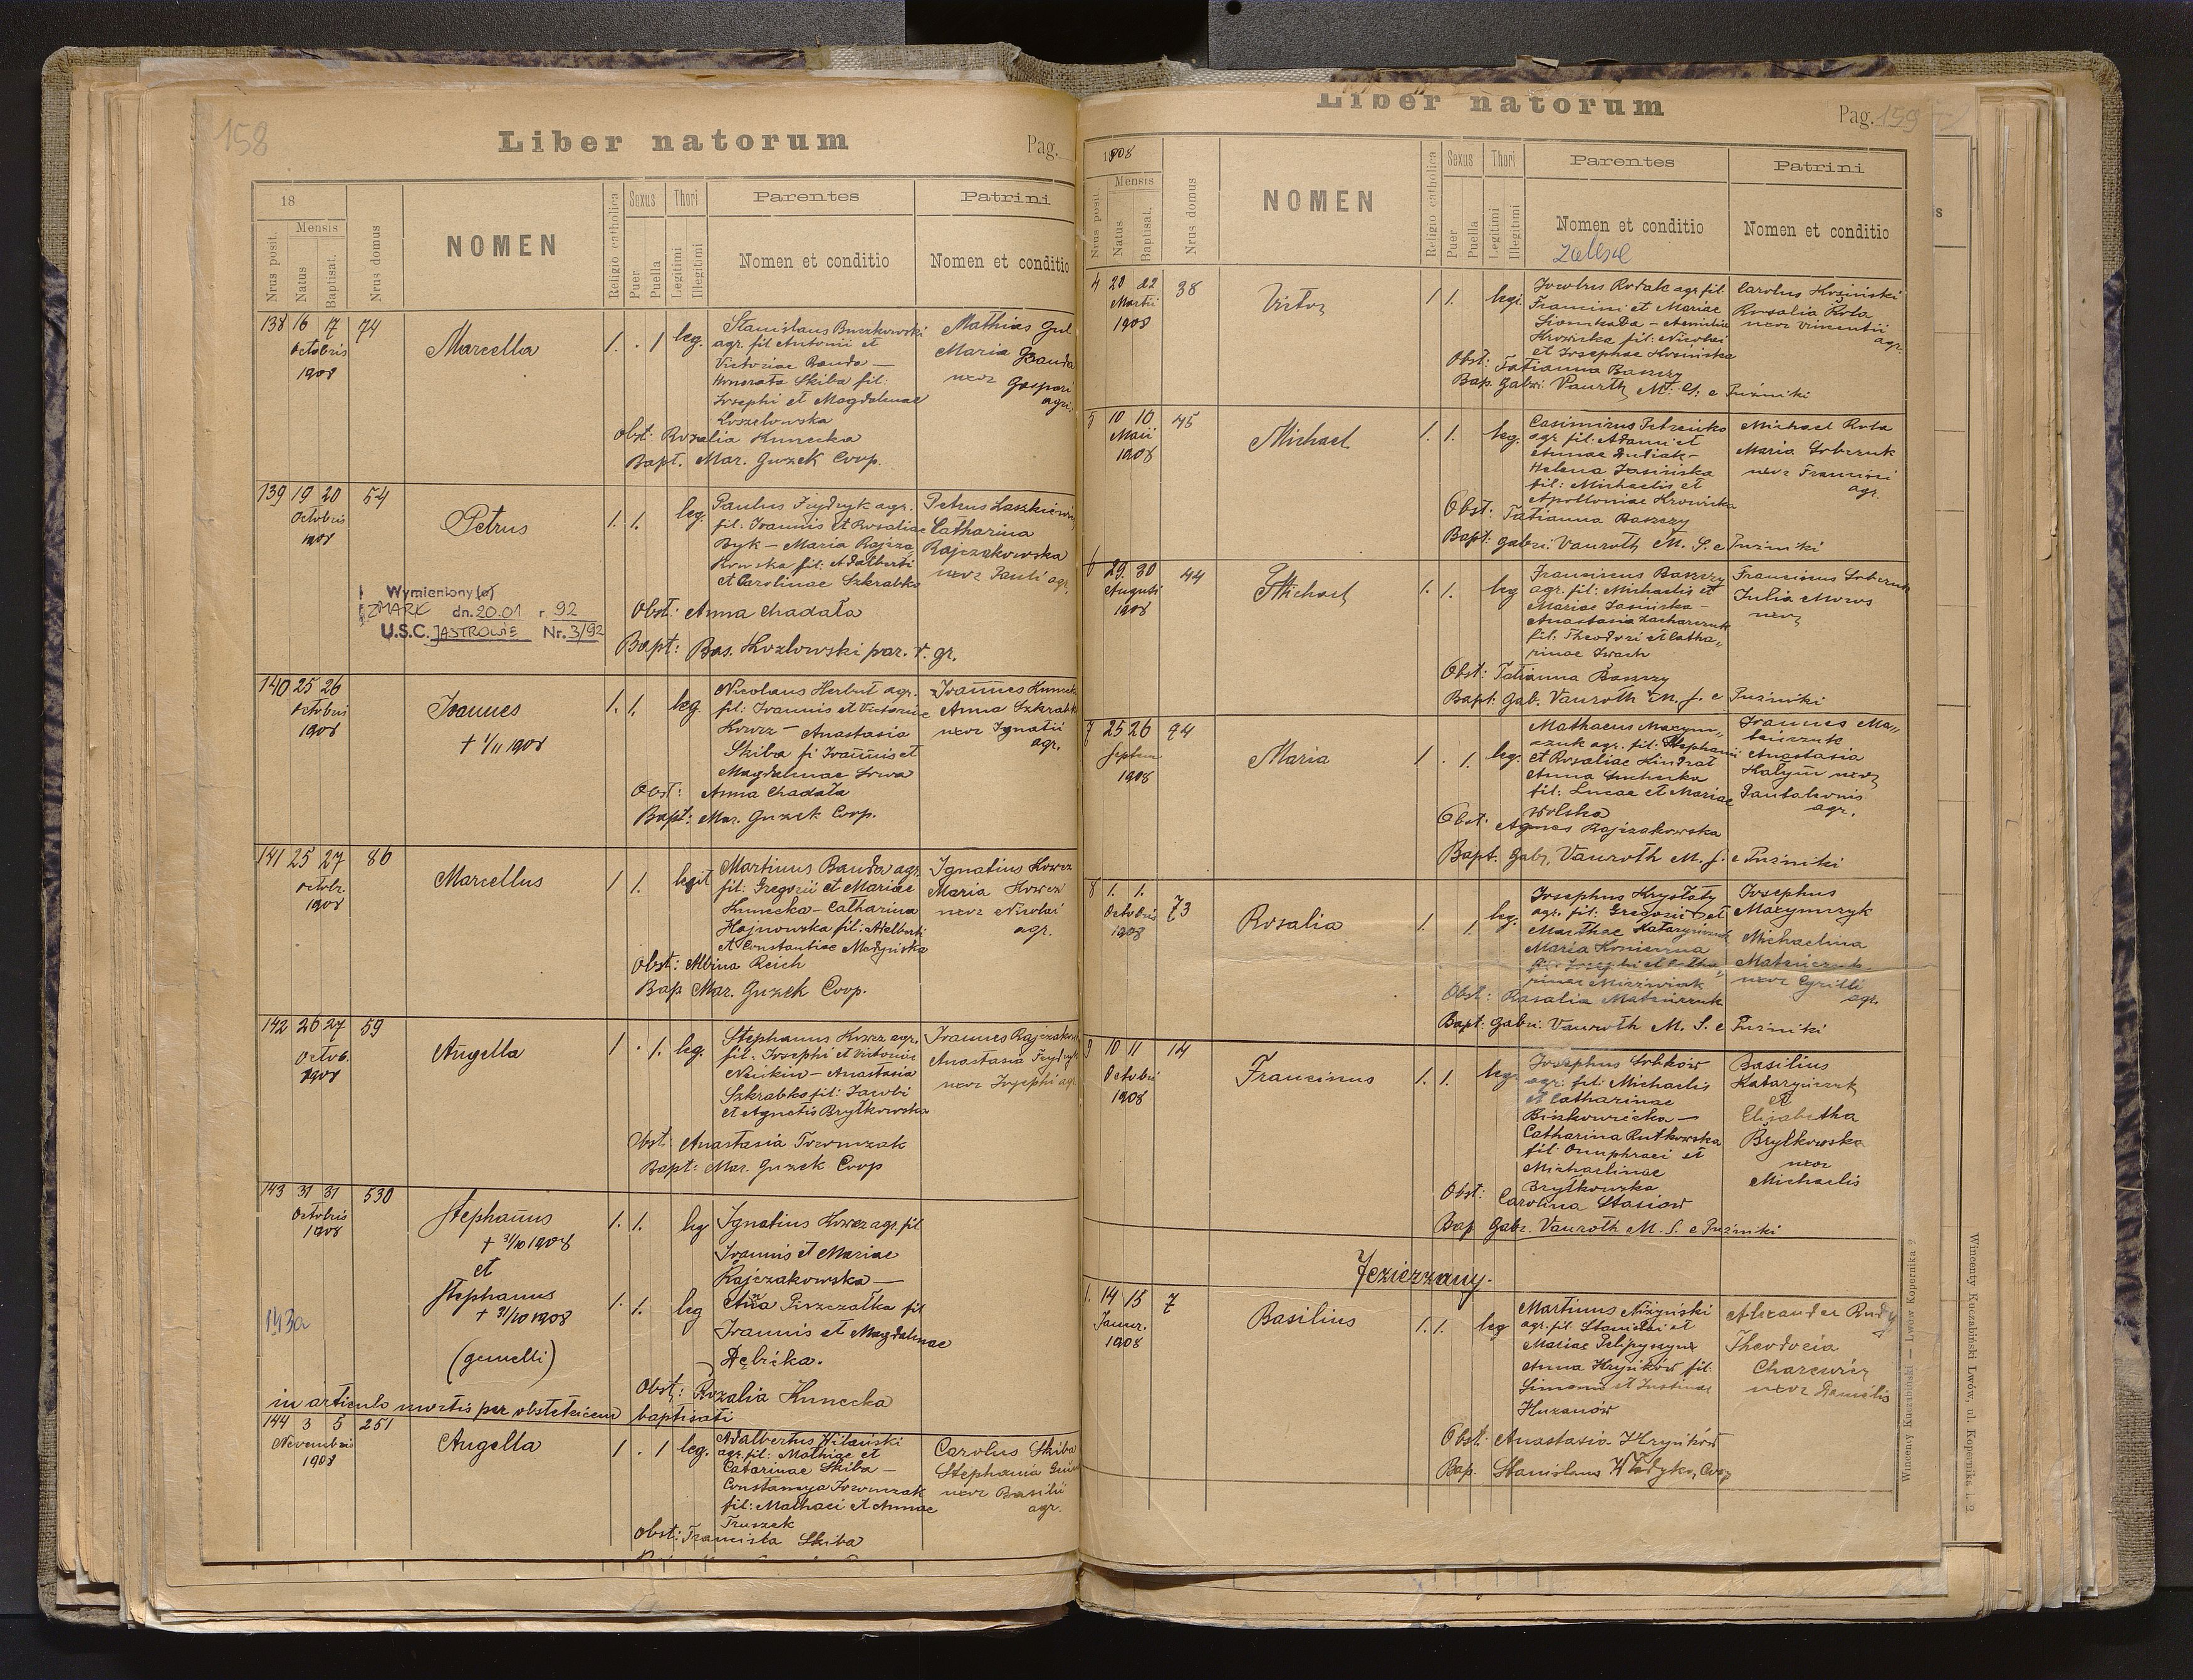 158
Liber natorum
Pag.
18
Nrus posit.
Mensis
Natus
Baptisat.
Nrus domus
NOMEN
Religio catholica
Sexus
Puer
Puella
Thori
Legitimi
Illegitimi
Parentes
Nomen et conditio
Patrini
Nomen et conditio
138 16 17 74
Octobris
1908
Marcella
1. . 1 leg.
Stanislaus Buczkowski
agr. fil Antonii et
Victoriae Banda —
Honorata Skiba fil:
Josephi et Magdalenae
Koszelowska
Mathias Gul
Maria Banda
uxor Gaspari
agr.
Obst: Rozalia Kunecka
Bapt. Mar. Guzek Coop.
139 19 20 54
Octobris
1908
Petrus
1. 1. leg.
Paulus Frydryk agr.
fil. Joannis et Rosaliae
Byk — Maria Rajcza
kowska fil: Adalberti
et Carolinae Szkrabka
Petrus Laszkiewicz
Catharina
Rajczakowska
uxor Pauli agr.
Wymieniony(a)
ZMARŁ dn. 20.01 r. 92
U.S.C. JASTROWIE Nr. 3/92
Obst: Anna Chadała
Bapt: Bas. Kozlowski par. r. gr.
140 25 26
Octobris
1908
Joannes
+ 1/11 1908
1. 1. leg
Nicolaus Herbut agr.
fil: Joannis et Victoriae
Kowcz — Anastasia
Skiba fi Joannis et
Magdalenae Sowa
Joannes Kuneck
Anna Szkrabk
uxor Ignatii
agr.
Obst: Anna Chadała
Bapt: Mar. Guzek Coop.
141 25 27 86
Octobr.
1908
Marcellus
1 1. legit
Martinus Banda agr
fil: Gregorii et Mariae
Kunecka — Catharina
Hojnowska fil: Adalberti
et Constantiae Medyńska
Ignatius Kowcz
Maria Kowcz
uxor Nicolai
agr.
Obst: Albina Reich
Bap Mar. Guzek Coop.
142 26 27 59
Octob.
1908
Angella
1 . 1. leg.
Stephanus Kowcz agr.
fil: Josephi et Victoriae
Anastasia
Szkrabka fil: Jacobi
et Agnetis Brytkowska
Joannes Rajczakows
Anastasia Frydryk
uxor Josephi agr
Obst: Anastasia
Bapt: Mar. Guzek Coop
143 31 31 530
Octobris
1908
Stephanus
+ 31/10 1908
et
Stephanus
+ 31/10 1908
(gemelli)
143a
1. 1. leg
1. 1. leg
Ignatius Kowcz agr. fil
Joannis et Mariae
Rajczakowska —
Anna Piszczałka fil
Joannis et Magdalenae
Dębicka.
Obst: Rozalia Kunecka
in articulo mortis per obstetricem baptisati
144 3 5 251
Novembris
1908
Angella
1 . 1 leg.
Adalbertus Wilański
agr. fil: Mathiae et
Catarinae Skiba —
fil: Mathaei et Annae
Truszek
Carolus Skiba
Stephania
uxor Basilii
agr.
Obst: Francisca Skiba
Liber natorum
Pag. 159
1908
Nrus posit.
Mensis
Natus
Baptisat.
Nrus domus
NOMEN
Religio catholica
Sexus
Puer
Puella
Thori
Legitimi
Illegitimi
Parentes
Nomen et conditio
Zalesie
Patrini
Nomen et conditio
4 20 22 38
Martii
1908
Victor
1 1. legi.
Jacobus Rodak agr fil.
et Mariae
fil: Nicolai
et Josephae Kosińska
Carolus Kosiński
Rosalia Rola
uxor Vincentii
agr.
Obst: Tatianna Baszczy
Bap. Gabri: Vauroth M. S. e Puźniki
5 10 10 45
Maii
1908
Michael
1. 1. leg.
Casimirus
agr fil: Adami et
Annae Dudiak —
Helena Jasińska
fil: Michaelis et
Apolloniae Krowicka
Michael Rola
Maria Sobczuk
uxor Francisci
agr.
Obst: Tatianna Baszczy
Bapt: Gabri: Vauroth M. S. e Puźniki
6 29. 30 44
Augusti
1908
Michael
1. 1. leg
Franciscus Baszczy
agr. fil: Michaelis et
Mariae Jasińska —
Anastasia Zacharczuk
fil: Theodori et Catha„
rinae Iwach
Franciscus Sobczuk
Julia Moros
uxor
Obst: Tatianna Baszczy
Bapt: Gab. Vauroth M. S. e Puźniki
7 25 26 94
Septem
1908
Maria
1 . 1. leg.
Mathaeus Maxym„
czuk agr. fil: Stephani
et Rosaliae Kindrat
Anna Suchecka
fil: Lucae et Mariae
Wolska
Joannes Ma„
teiczuk
Anastasia
Hałym uxor
Pantaleonis
agr.
Obst: Agnes Rajczakowska
Bapt. Gabr. Vauroth M. S. e Puźniki
8 1. 1. 73
Octobris
1908
Rosalia
1. 1. leg.
Josephus Krysłaty
agr. fil: Gregorii et
Marthae Katarynczuk
Maria
fil: Josephi et Catha„
rinae
Josephus
Maxymczyk
Michaelina
uxor Cyrilli
agr.
Obst: Rosalia Mateiczuk
Bapt: Gabri. Vauroth M. S. e Puźniki
9 10 11 14
Octobris
1908
Franciscus
1. 1. leg.
Josephus Sobków
agr: fil: Michaelis
et Catharinae
Biszkowiecka —
Catharina Rutkowska
fil: Onuphraei et
Michaelinae
Brytkowska
Basilius
Katarynczuk
et
Elizabetha
Brytkowska
uxor
Michaelis
Obst: Carolina Stasiow
Bap Gabr. Vauroth M. S. e Puźniki
Jezierzany.
1. 14 15 7
Januar.
1908
Basilius
1. 1. leg
Martinus Niżyński
agr. fil. Stanislai et
Mariae
Anna Hryńków fil:
Simonis et Justinae
Huzanów
Alexander Rudy
Theodocia
Charewicz
uxor Danielis
Obst: Anastasia Hryńków
Bap. Stanislaus Władyka, Coop
Wincenty Kuczabiński — Lwów Kopernika 2
Wincenty Kuczabiński Lwów, ul. Kopernika l. 2.